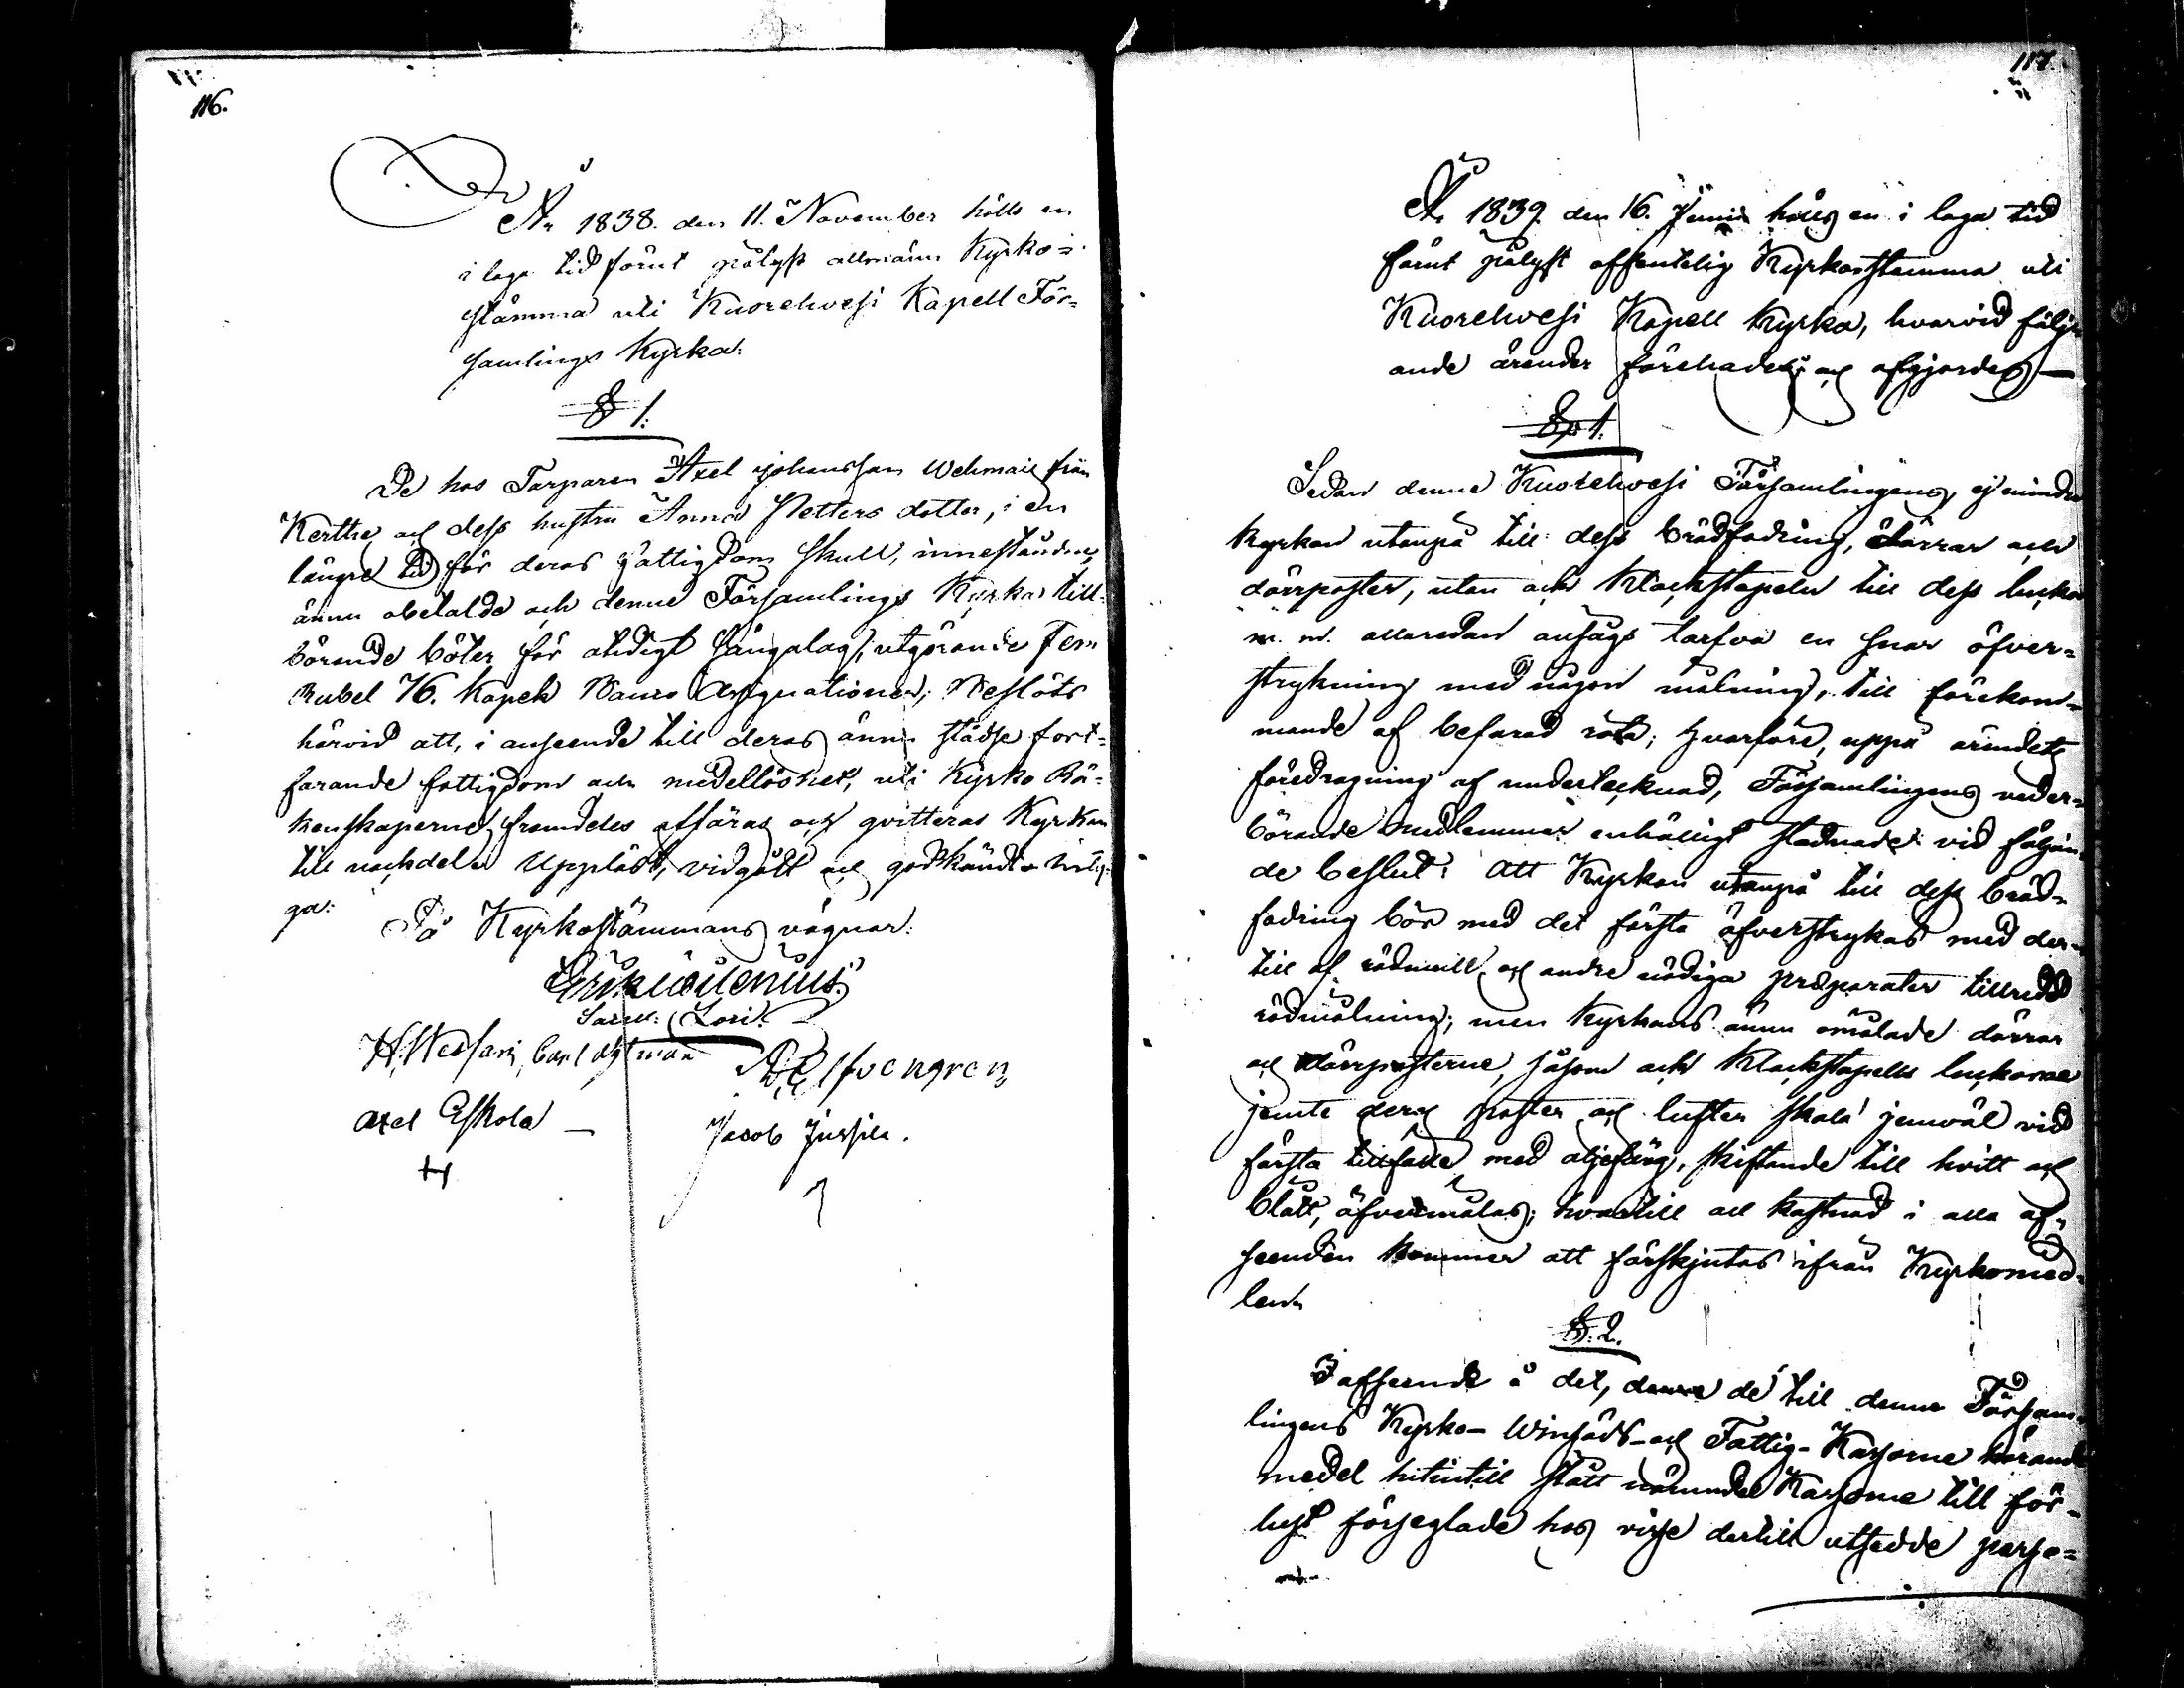 116.
År 1838. den 11. November hölls en
i laga tid förut pålyst allmänn Kyrko=
stämma uti Kuorehvesi Kapell För=
samlings Kyrka:
§ 1.
De hos Torparen Axel Johansson Wehmais från
Kerthe och dess hustru Anna Petters dotter, i en
längre tid för deras fattigdoms skull, innestående,
ännu obetalde och denne Församlings Kyrka till=
hörande böter för otidigt sängalag, utgörande Fem
Rubel 76. Kopek Banco Assignationer; Beslöts
härvid att, i anseende till deras ännu städse fort=
farande fattigdom och medellöshet, uti Kyrko Rä=
kenskaperne framdeles afföras och qvitteras Kyrkan
till nackdel. Uppläst, vidgått och godkändt
På Kyrkostämmans vägnar:
Erik
Sacell: Lori:
Carl
Elfvengren
Axel Eskola
Jacob Jussila.
117.
År 1839. den 16. Junii hölls en i laga tid
förut pålyst offentelig Kyrkostämma uti
Kuorehvesi Kapell Kyrka, hvarvid följ=
ande ärender förehades och afgjordes —
§ 1.
Sedan denne Kuorehvesi Församlingens, ej mindre
Kyrkan utanpå till dess brädfodring, dörrar och
dörrposter, utan och Klockstapeln till dess luckor
m. m. allaredan ansågs tarfva en snar öfver=
strykning med någon målning, till förekom=
mande af befarad röta; hvarföre, uppå ärendets
föredragning af undertecknad, Församlingens veder=
börande medlemmar enhälligt stadnade vid följan=
de beslut: Att Kyrkan utanpå till dess bräd=
fodring bör med det första öfverstrykas med der=
till af rödmull och andre nödiga præparater tillredd
rödmålning; men Kyrkans ännu omålade dörrar
och dörrposterne, såsom och Klockstapelns luckorne
jemte deras poster och lufter skola jemväl vid
första tillfälle med oljefärg, skiftande till hvitt och
blått, öfvermålas; hvartill all kostnad i alla af=
seenden kommer att förskjutas ifrån Kyrkomed=
len.
§. 2.
I afseende å det, de till denna Försam=
lingens Kyrko- Winsäds- och Fattig-Kassorne hörande
medel hitintill stått nämnde Kassorne till för=
lust förseglade hos visse dertill utsedde perso=